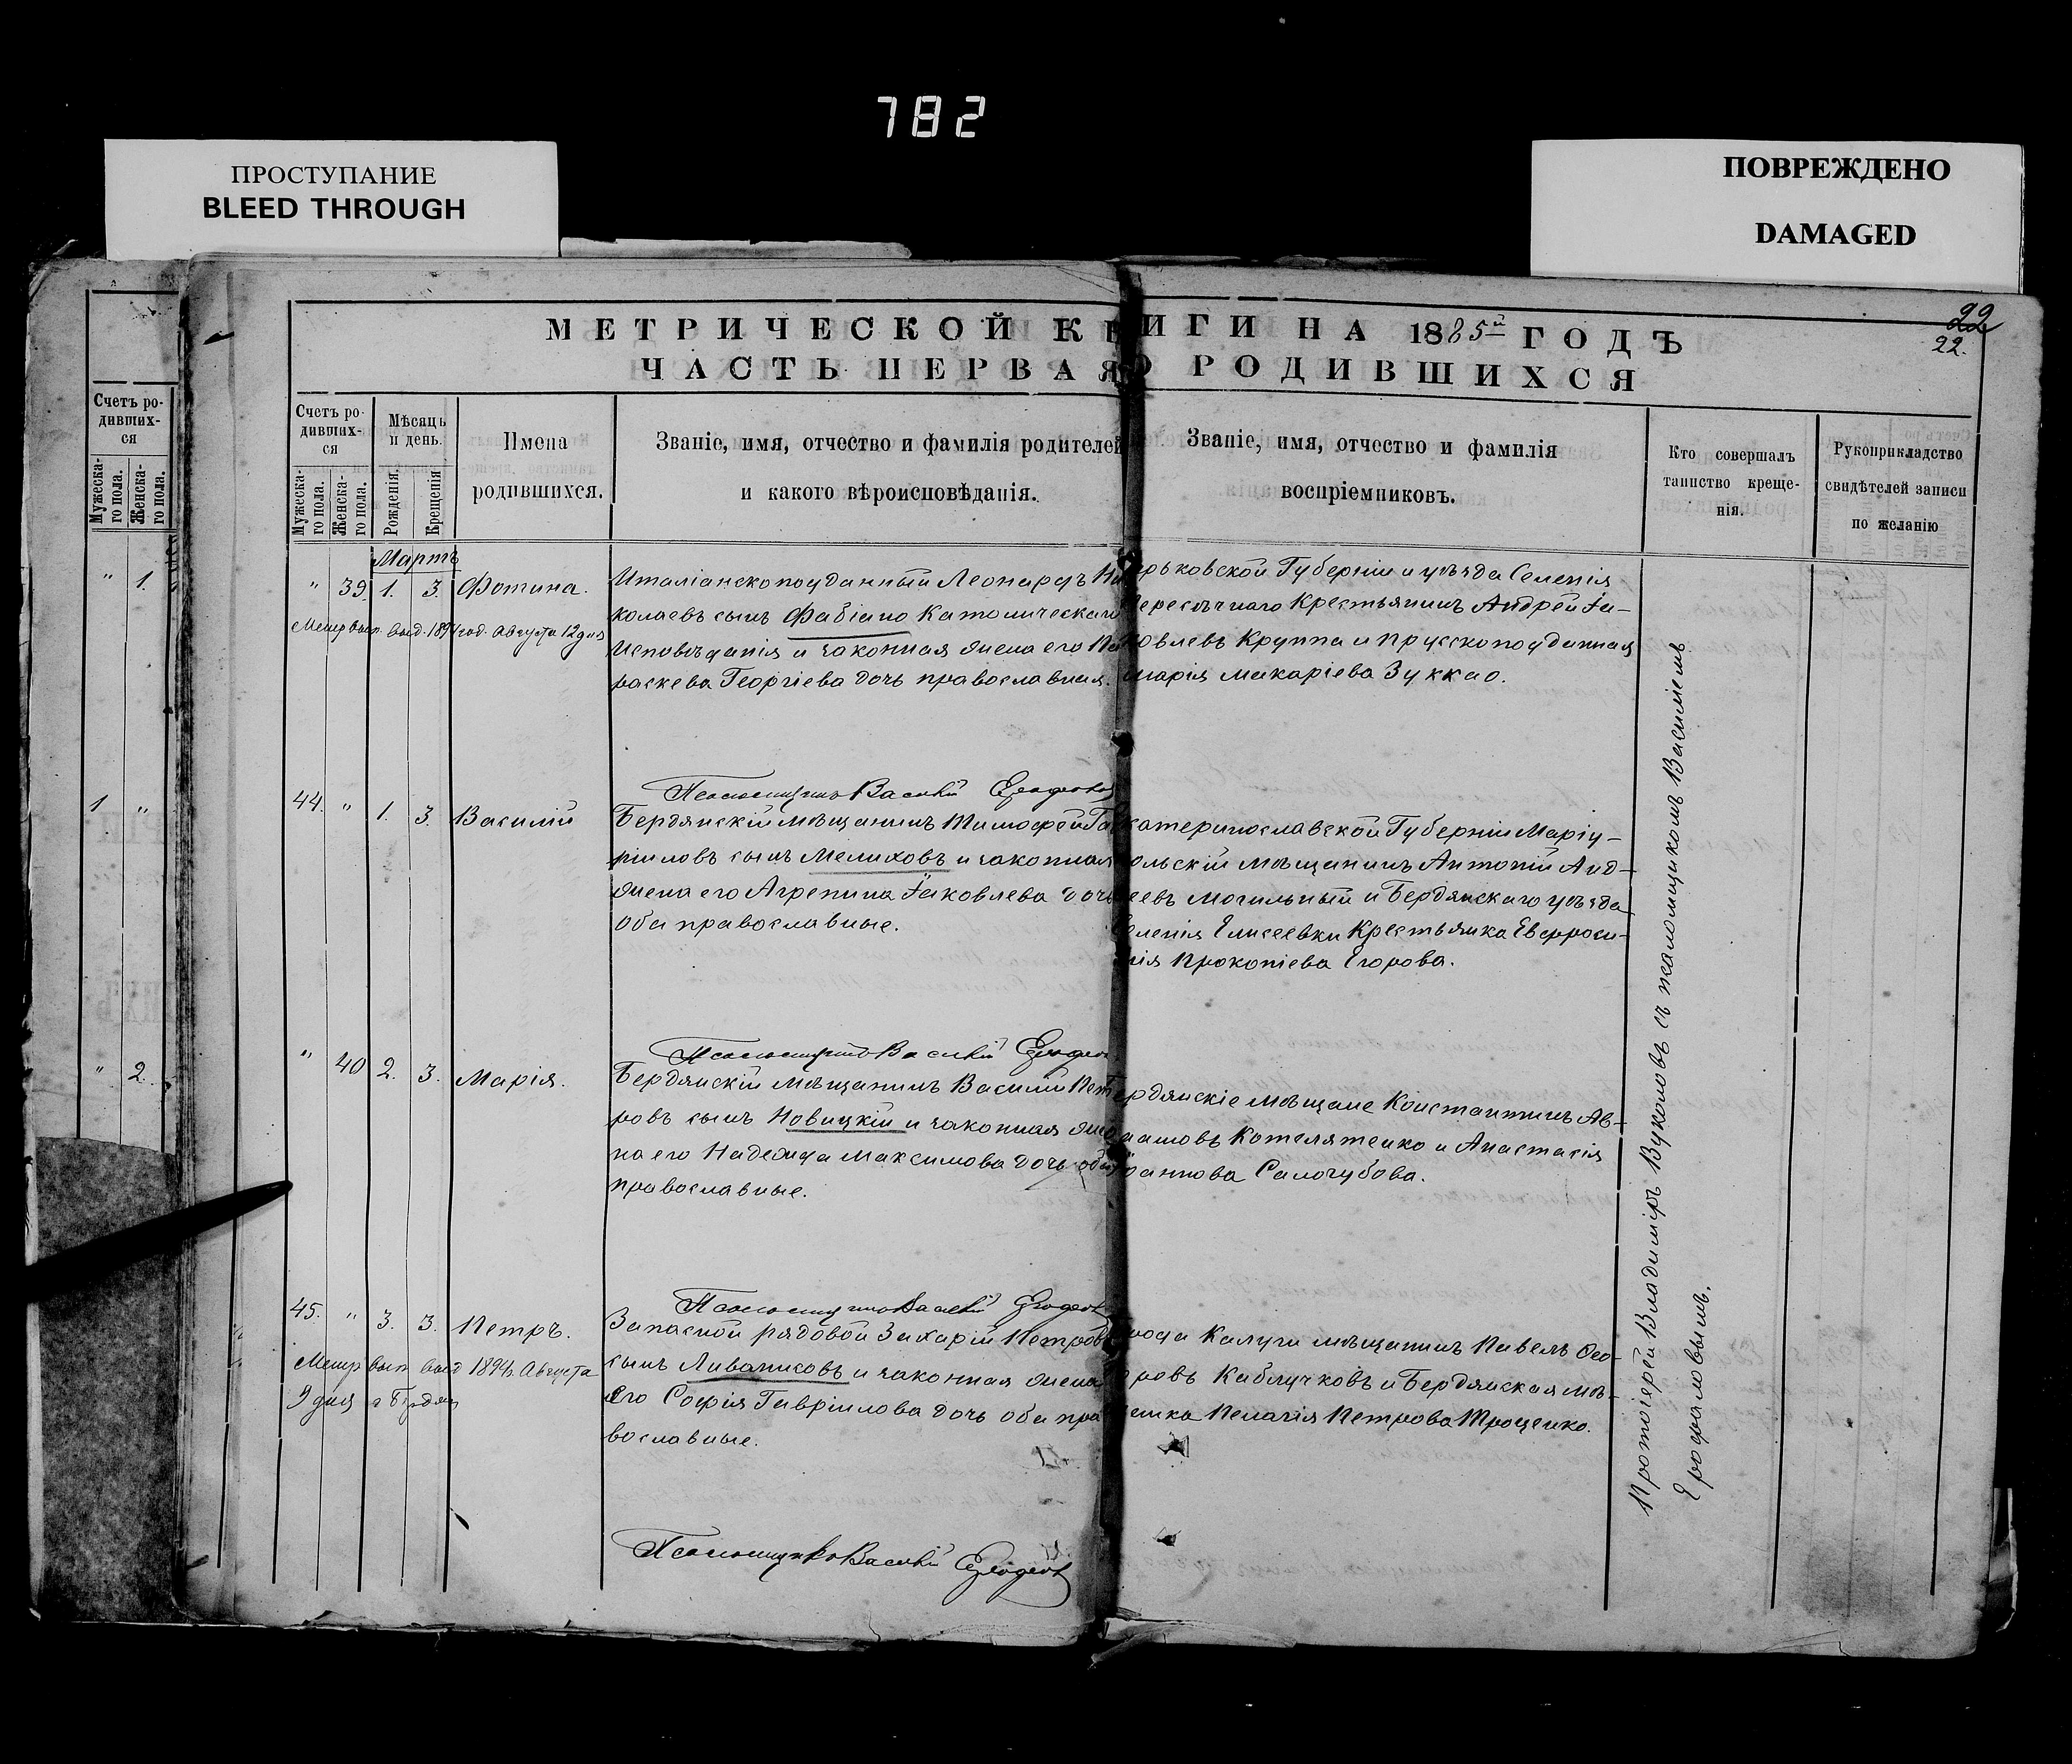 782
ПРОСТУПАНИЕ
BLEED THROUGH
ПОВРЕЖДЕНО
DAMAGED
22
22.
МЕТРИЧЕСКОЙ КНИГИ НА 1885й ГОДЪ
ЧАСТЬ ПЕРВАЯ О РОДИВШИХСЯ
Счетъ ро-
дивших-
ся
Мужеска-
го пола.
Женска-
го пола.
" 1.
1 "
" 2.
Счетъ ро-
дивших-
ся
Мужеска-
го пола.
Женска-
го пола.
Мѣсяць
и день.
Рожденія.
Крещенія
Имена
родившихся.
Званіе, имя, отчество и фамилія родителей
и какого вѣроисповѣданія.
Званіе, имя, отчество и фамилія
воспріемниковъ.
Кто совершалъ
таинство креще-
нія.
Рукоприкладство
свидѣтелей записи
по желанію
Мартъ
" 39. 1. 3. Фотина.
Метр вып. выд. 1894 год. Августа 12 дня
Италіанскоподданный Леонардъ Ни
колаевъ сынъ Фабіано Католическаго
исповѣданія и законная жена его Па
раскева Георгіева дочь православная.
рьковской Губерніи и уѣзда Селенія
ересѣчнаго Крестьянинъ Андрей Іа-
ковлевъ Круппа и прусскоподданная
марія макаріева Зуккао.
44. " 1. 3. Василій
Псаломщикъ Василій Ерофаловъ
Бердянскій мѣщанинъ Тимофей Га
ріиловъ сынъ Мелиховъ и законная
жена его Агрепина Іаковлева дочь
оба православные.
катеринославской Губерніи Маріу-
ольскій мѣщанинъ Антоній Анд-
еевъ могильный и Бердянскаго уѣзда
еленія Елисеевки Крестьянка Евфроси-
нія Прокопіева Егорова.
" 40 2. 3. Марія.
Псаломщикъ Василій
Бердянскій мѣщанинъ Василій Пет
ровъ сынъ Новицкій и законная же
на его Надежда Максимова дочь оба
православные.
ердянскіе мѣщане Константинъ Ав-
амовъ Котеляtенко и Анастасія
Салогубова.
45. " 3. 3. Петръ.
Метр вып выд 1894 г. Августа
9 дня г Бердян
Псаломщикъ Василій Ерофаловъ
Запасной рядовой Захарій Петровъ
сынъ Ливаниковъ и законная жена
его Софія Гавріилова дочь оба пра
вославные.
рода Калуги мѣщанинъ Павелъ Фео-
ровъ Каблучковъ и Бердянская мѣ-
анка Пелагія Петрова Троценко.
Псаломщикъ Василій Ерофаловъ
Протоіерей Владиміръ Вуколовъ съ псаломщикомъ Василіемъ
Ерофаловымъ.